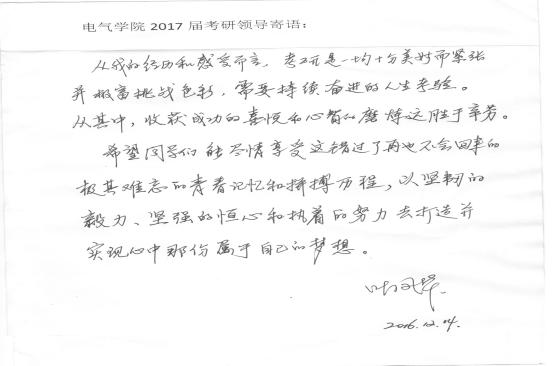 电气学院 2017 届考研领导寄语：
从我的经历和感受而言，考研是一场十分美好而紧张
并极富挑战色彩，需要持续奋进的人生考验。
从其中，收获成功的喜悦和心智的磨炼远胜于辛劳。
希望同学们能尽情享受这错过了再也不会回来的
极其难忘的青春记忆和拼搏历程，以坚韧的
毅力、坚强的恒心和执着的努力去打造并
实现心中那份属于自己的梦想。
2016.12.14.